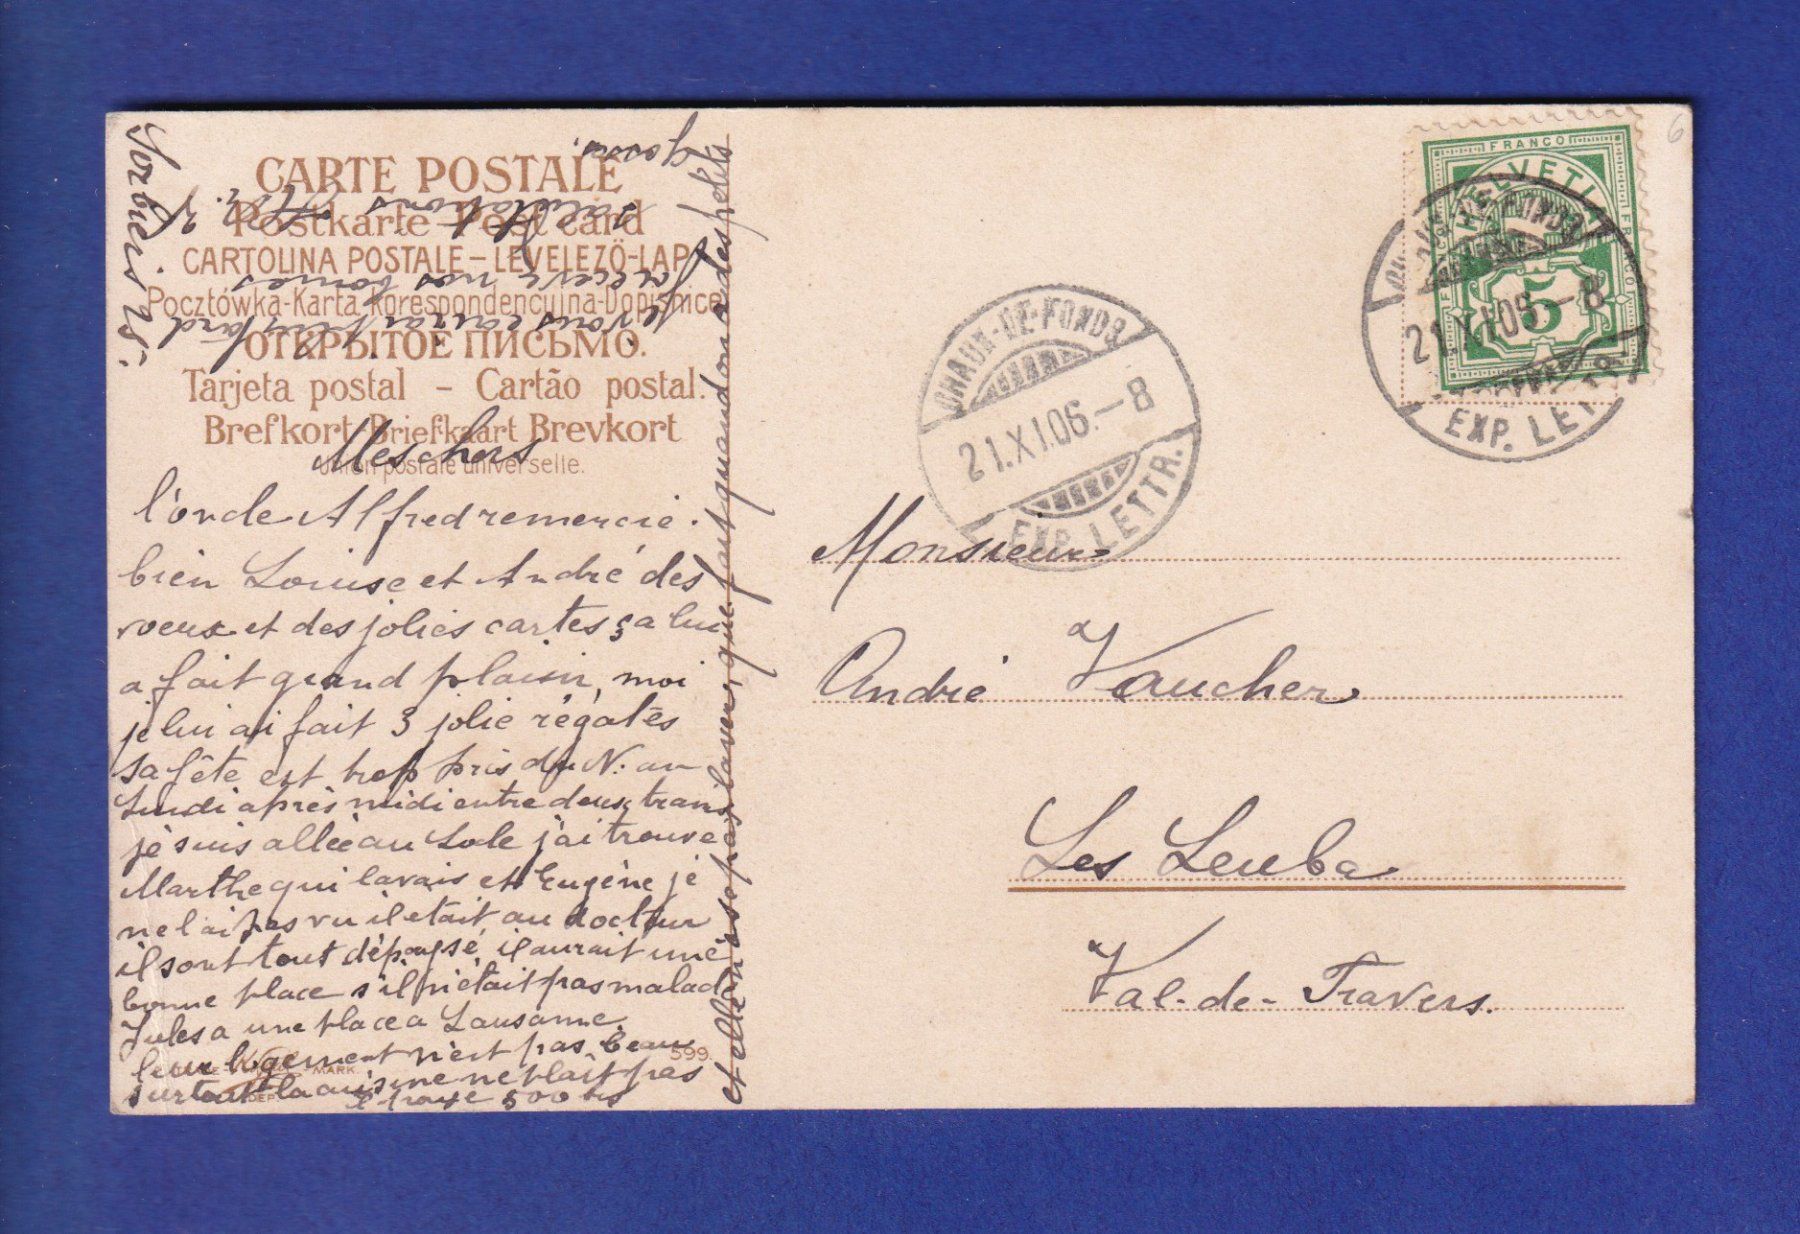 CARTE POSTALE
Postkarte – Post card
CARTOLINA POSTALE – LEVELEZÖ-LAP
Pocztówka-Karta korespondencyjna-Dopisnice
ОТКРЫТОЕ ПИСЬМО.
Tarjeta postal – Cartão postal.
Brefkort-Briefkaart Brevkort
Union postale universelle.
Sorbiers 25.
Mes chers
l'oncle Alfred remercie
bien Louise et André des
voeux et des jolies cartes ça lui
a fait grand plaisir, moi
je lui ai fait 3 jolie régates
sa fête est trop pris du N. an
Lundi après midi entre deux trains
je suis allée au Locle j'ai trouvé
Marthe qui lavais et Eugène je
ne l'ai pas vu il était au docteur
il sont tout dépaysé, il aurait une
bonne place s'il n'était pas malade
Jules a une place a Lausanne.
leur logement n'est pas beau
surtout la cuisine ne plaît pas
paye 500 frs
et elle
laver, que fait quand on a des petits
je vous
plus tard
recevez nos bonnes
salutations
MARK
DEP
599.
CHAUX-DE-FONDS
21.XI.06.–8
EXP. LETTR.
FRANCO
HELVETIA
5
CHAUX-DE-FONDS
21.XI.06.–8
EXP. LETTR.
6
Monsieur
André Vaucher
Les Leuba
Val-de-Travers.